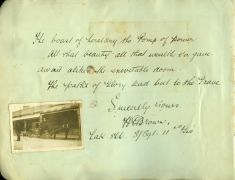 The boast of heraldry the Pomp of power
All that beauty all that wealth e'er gave
Await alike the inevitable doom
The Paths of Glory lead but to the Grave
Sincerely Yours
Brown
Late